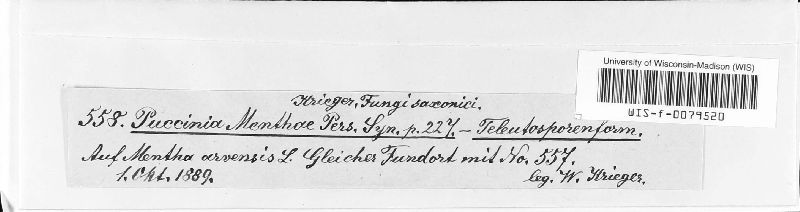 University of Wisconsin-Madison (WIS)
WIS-f-0079520
Krieger, Fungi saxonici.
558. Puccinia Menthae Pers. Syn. p. 227. – Teleutosporenform.
Auf Mentha arvensis L. Gleicher Fundort mit No. 557.
1. Okt. 1889.
leg. W. Krieger.